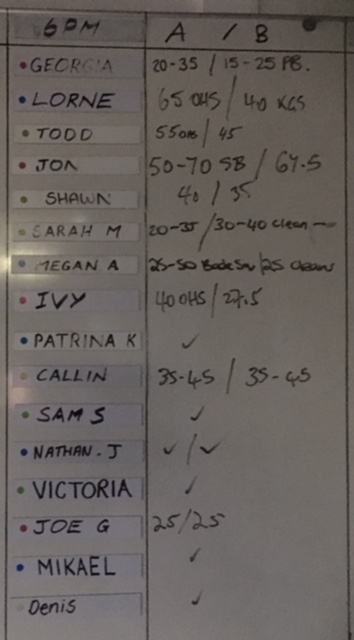 6PM A / B
GEORGIA 20-35 / 15-25 PB.
LORNE 65 OHS / 40 KGS
TODD 55 OHS / 45
JON 50-70 SB / 67.5
SHAWN 40 / 35
SARAH M 20-35 / 30-40 Clean
MEGAN A 25-50 / 25 Cleans
IVY 40 OHS / 27.5
PATRINA K ✓
CALLIN 35-45 / 35-45
SAM S ✓
NATHAN. J ✓/✓
VICTORIA ✓
JOE G 25/25
MIKAEL ✓
Denis ✓